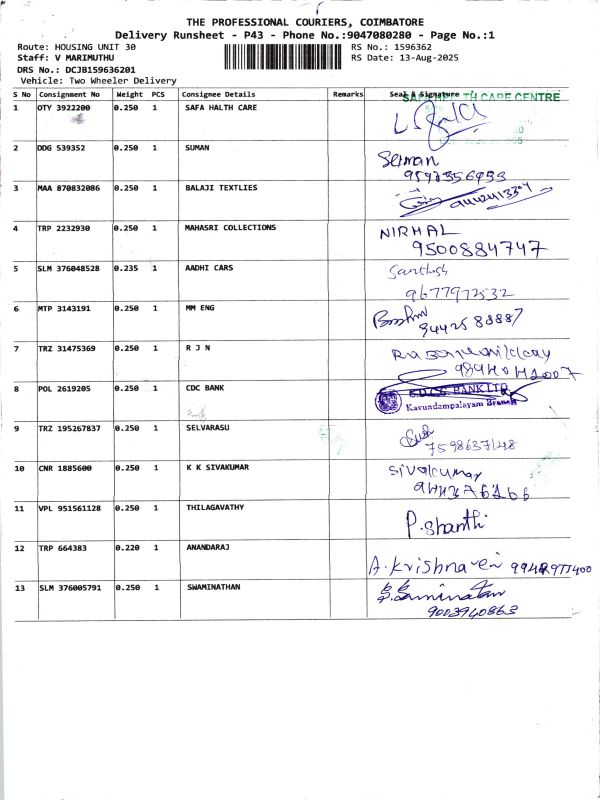 THE PROFESSIONAL COURIERS, COIMBATORE
Delivery Runsheet - P43 - Phone No.:9047080280 - Page No.:1
Route: HOUSING UNIT 30 RS No.: 1596362
Staff: V MARIMUTHU RS Date: 13-Aug-2025
DRS No.: DCJB159636201
Vehicle: Two Wheeler Delivery
S No Consignment No Weight PCS Consignee Details Remarks Seal & Signature
CARE CENTRE
1 OTY 3922200 0.250 1 SAFA HALTH CARE
2 DDG 539352 0.250 1 SUMAN
Suman
3 MAA 870832086 0.250 1 BALAJI TEXTLIES
4 TRP 2232930 0.250 1 MAHASRI COLLECTIONS NIRMAL
9500884747
5 SLM 376048528 0.235 1 AADHI CARS Santhosh
9677972532
6 MTP 3143191 0.250 1 MM ENG
7 TRZ 31475369 0.250 1 R J N
8 POL 2619205 0.250 1 CDC BANK C.D.C.C. BANK LTD
Kavundampalayam Branch
9 TRZ 195267837 0.250 1 SELVARASU
10 CNR 1885600 0.250 1 K K SIVAKUMAR Sivakumar
11 VPL 951561128 0.250 1 THILAGAVATHY
P. shanthi
12 TRP 664383 0.220 1 ANANDARAJ
A. Krishnaveni
13 SLM 376005791 0.250 1 SWAMINATHAN
9003940863